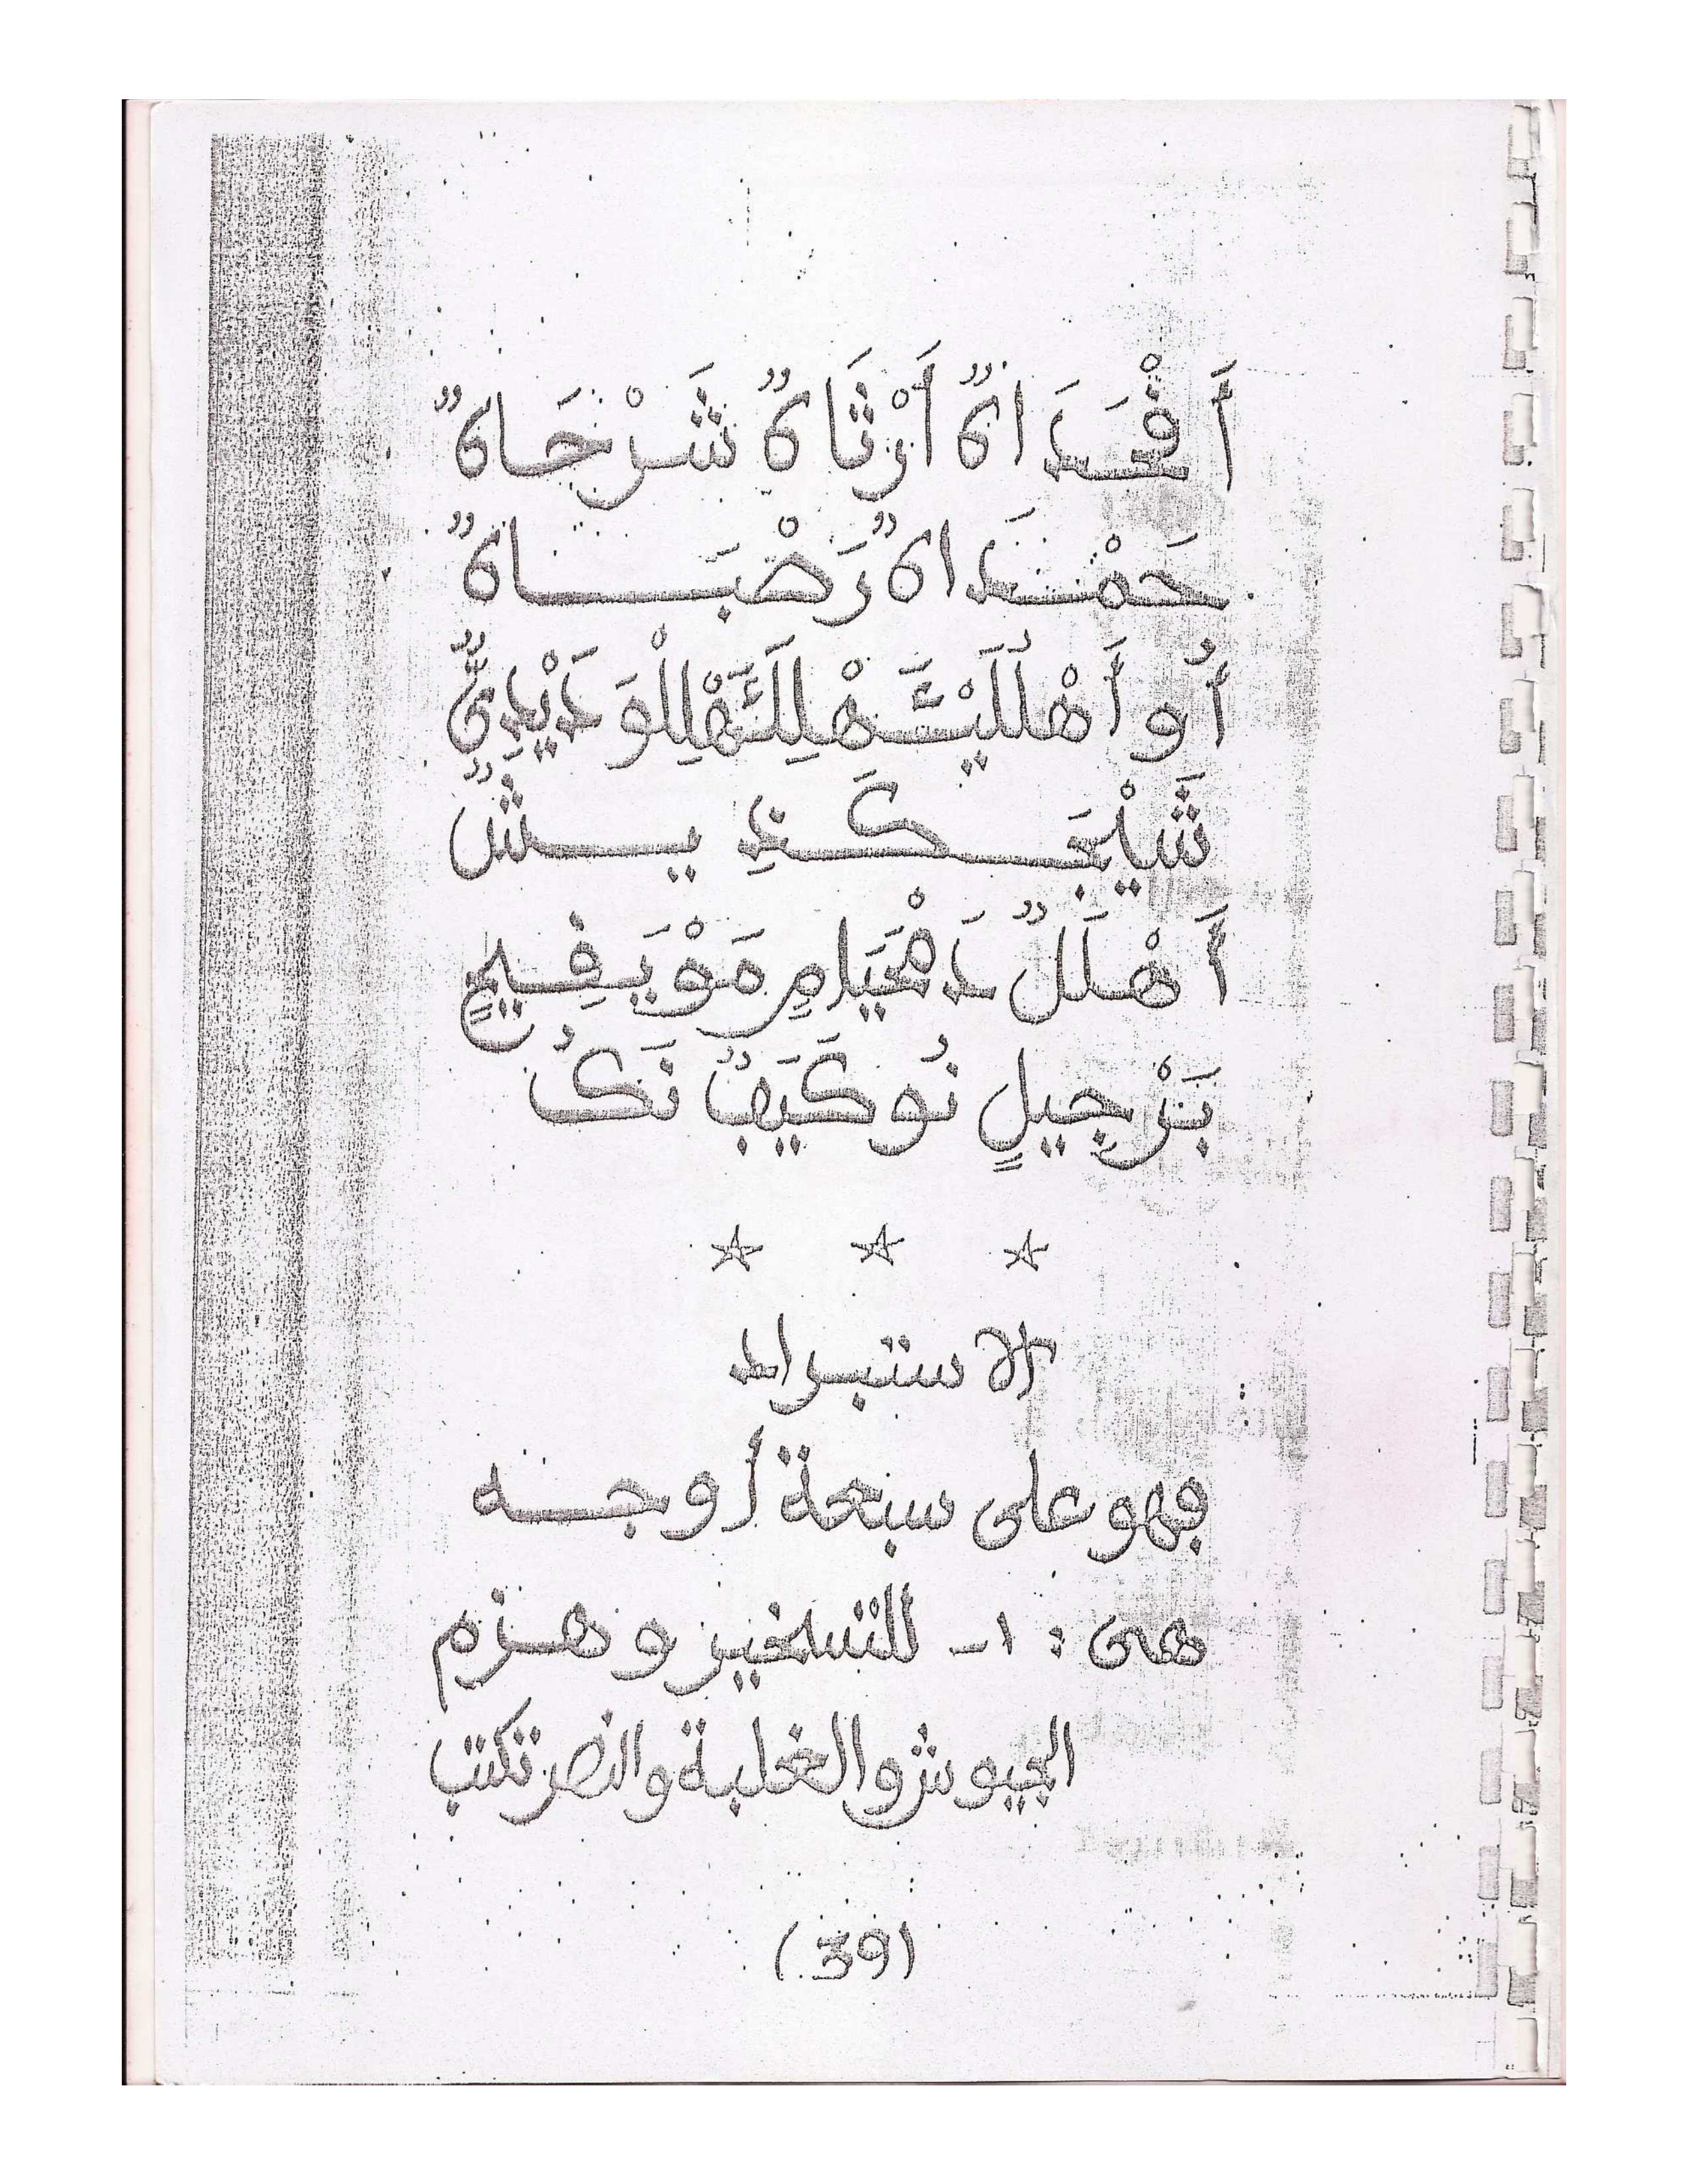 أَفْعَدَاهٌ أَرْثَاهٌ شَرْجَاهٌ
حَمْنَدَاهٌ رَضْبَاهٌ
أُو أَهْلَلَيْتَهْلِلَتَهْلِلْوَ دَيْدِىٌّ
شَيْبَعَكَندِ يشٌ
أَهْلَلٌ دَهْيَامِ مَوْيَفِيمٍ
بَرْجِيلٍ نُوكَيَبٌ نَكُ
☆ ☆ ☆
الاستبراد
فهو على سبعة أوجه
هى : ١- للتسخير و هزم
الجيوش والغلبة والنصر تكتب
(39)